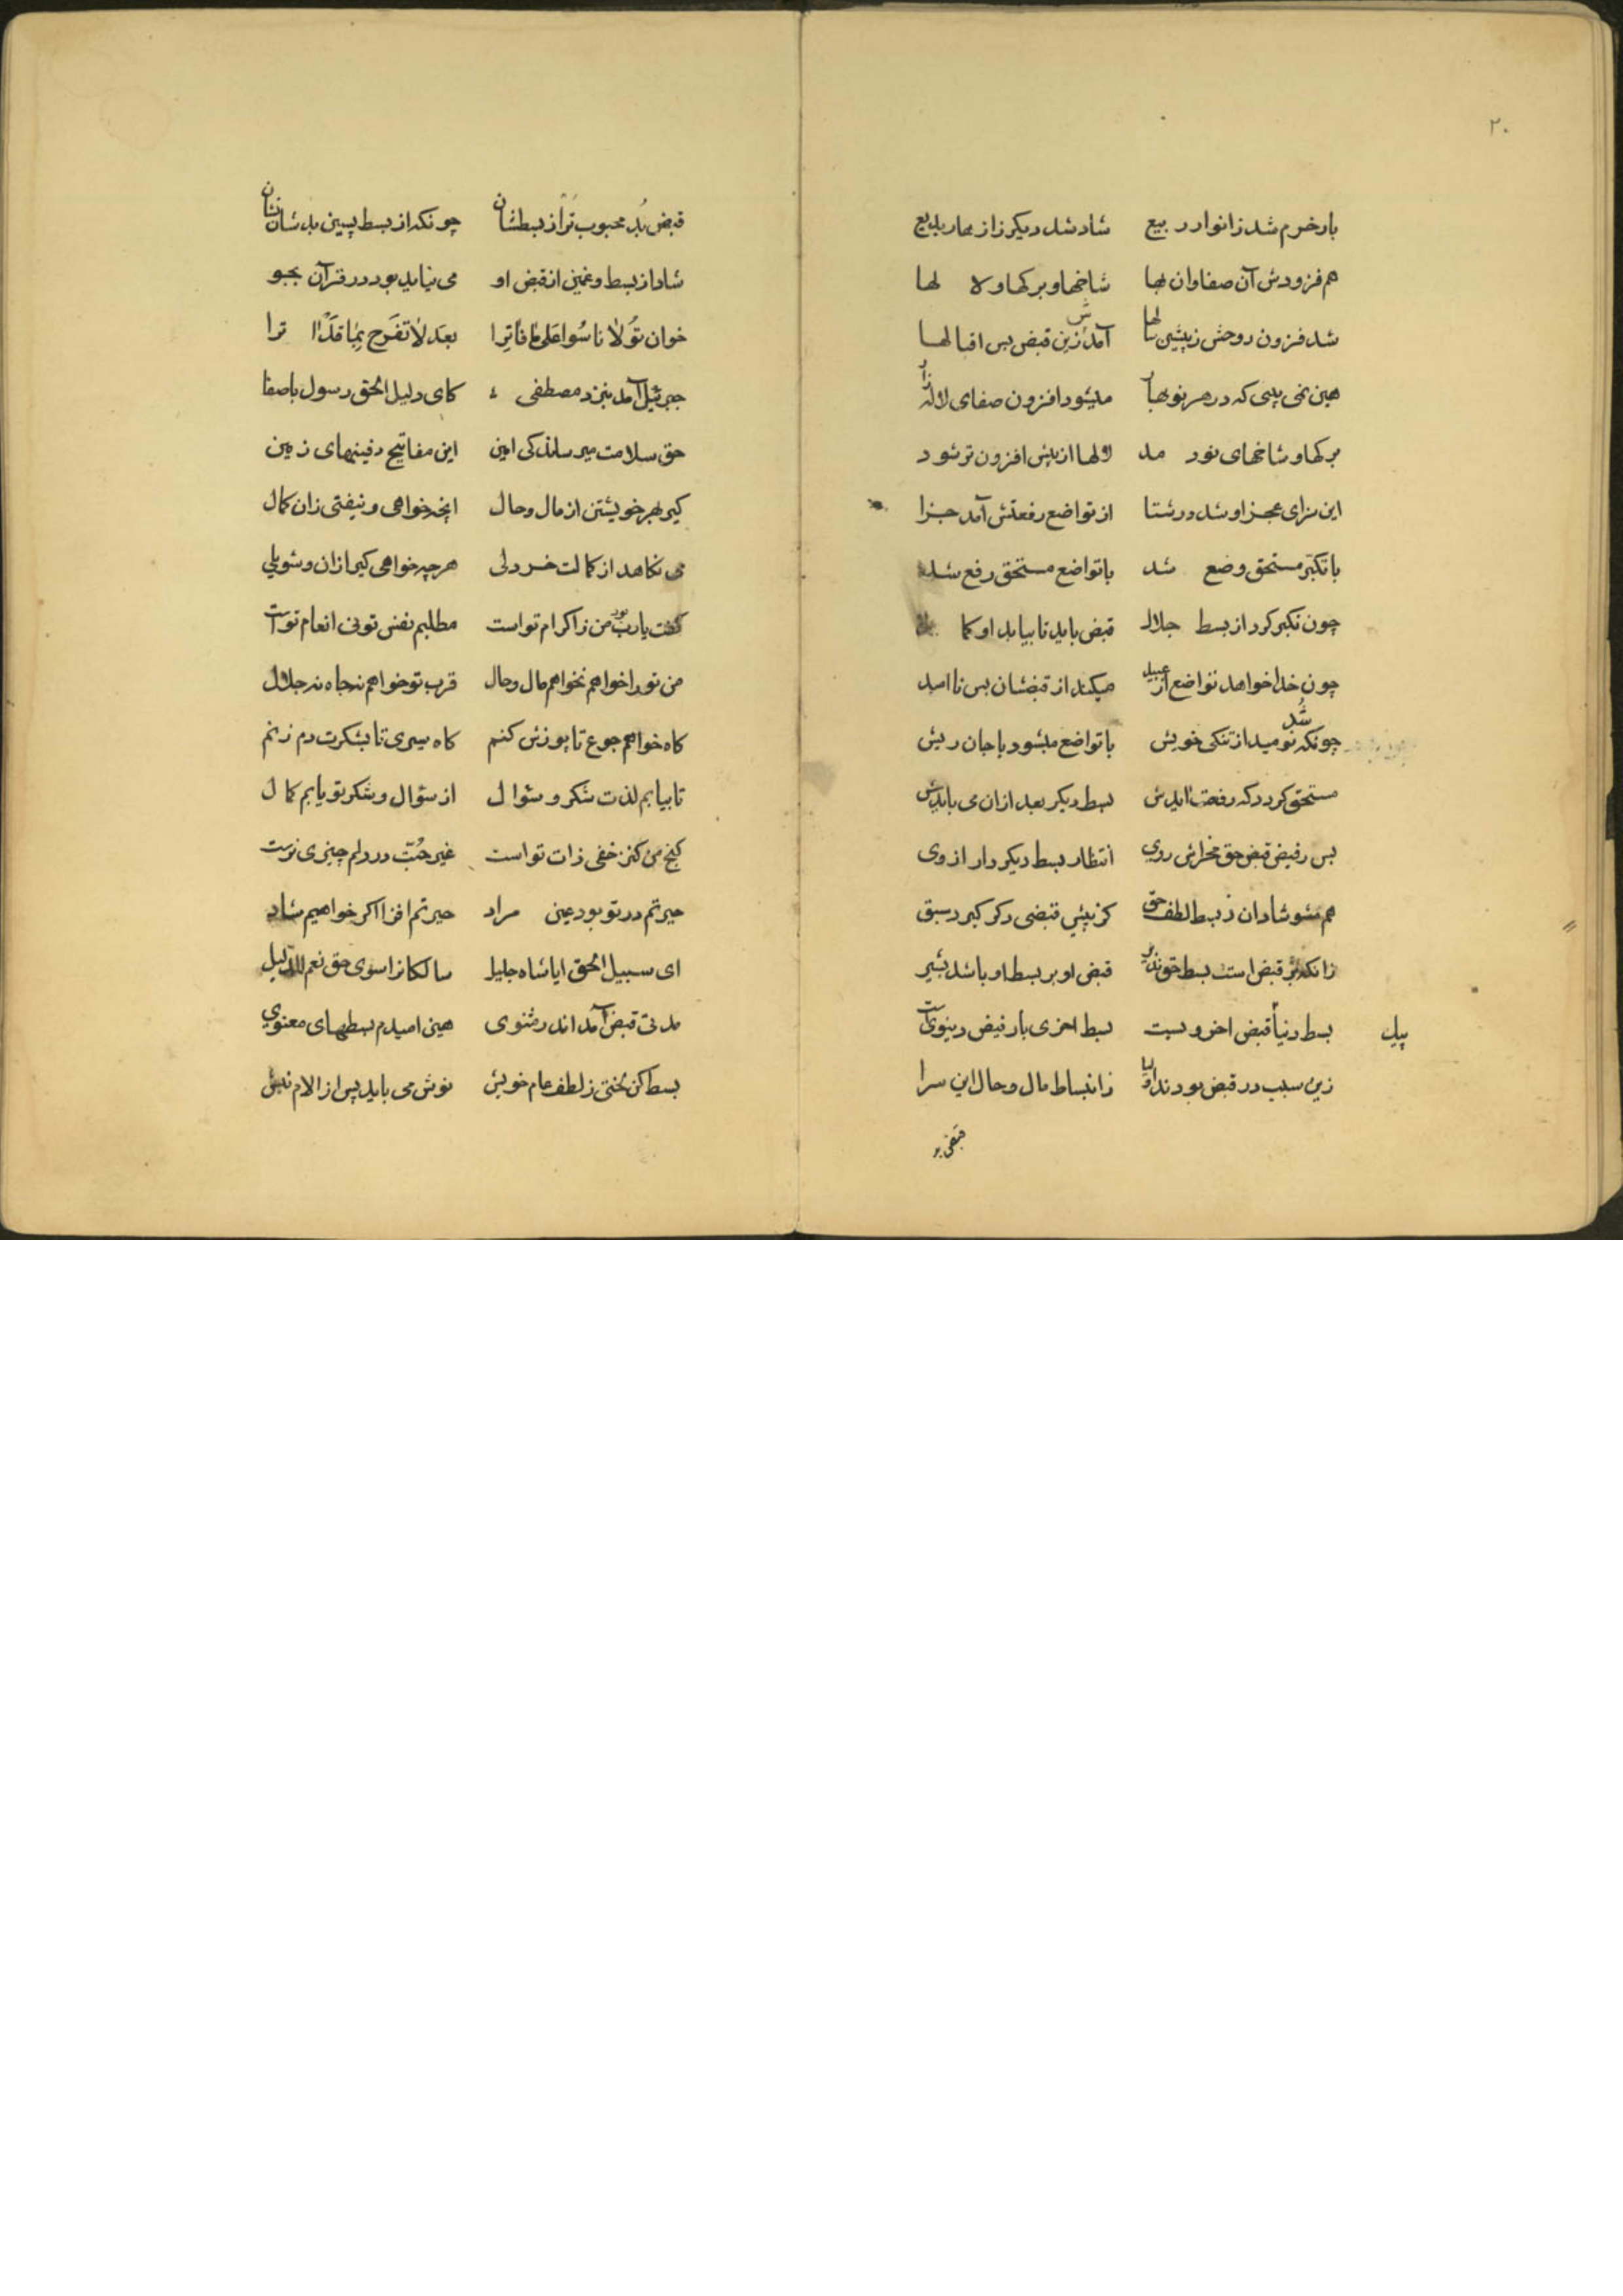 ۲۰
بار خرم شد ز انوار ربیع شاد شد دیکر ز ازهار بدیع
هم فزودش آن صفا وان بها شاخها و برکها و لا لها
شد فزون روحش ز پیشین سالها آمدش زین قبض بس اقبالها
هین نمی بینی که در هر نوبهار میشود افزون صفای لاله زار
برکها و شاخهای نور مد لولها از پیش افزون تر شود
این سزای عجز او شد در شتا از تواضع رفعتش آمد جزا
با تکبّر مستحق وضع شد با تواضع مستحق رفع شد
چون تکبر کرد از بسط جلال قبض باید تا بیاید او کمال
چون خدا خواهد تواضع از عبید میکند از قبضشان بس نا امید
چونکه نومید شد از تنکی خویش با تواضع میشود با جان ریش
مستحق کردد که رفعت ایدش بسط دیکر بعد ازان می بایدش
پس ز فیض قبض حق مخراش روی انتظار بسط دیکر دار ازوی
هم مشو شادان ز بسط لطف حق کز پیش قبضی دکر کیرد سبق
زانکه بر قبض است بسط حق نذیر قبض او بر بسط او باشد بشیر
بسط دنیا قبض اخرویست بسط اخری بار فیض دینویست
زین سبب در قبض بودند اولیا ز انبساط مال و حال این سرا
قبض بد
قبض بُد محبوب تر از بسطشان چونکه از بسط پسین بد شان نشان
شاد از بسط و غمین از قبض او می نیاید بود در قرآن بجو
خوان تو لا تاسوا علی ما فاترا بعد لا تفرح بما قد ترا
جبرئیل آمد بنزد مصطفی کای دلیل الحق رسول باصفا
حق سلامت میرساند کی امین این مفاتیح دفینهای زمین
کیر بهر خویشتن از مال و حال انچه خواهی و نیفتی زان کمال
می نکاهد از کمالت خردلی هرچه خواهی کیر ازان و شو یلی
کفت یارب بود من ز اکرام تو است مطلبم نفس تو نی انعام تو است
من تو را خواهم نخواهم مال و حال قرب تو خواهم نه جاه نه جلال
کاه خواهم جوع تا پوزش کنم کاه سیری تا بشکرت دم زنم
تا بیابم لذت شکر و سؤال از سؤال و شکر تو یابم کمال
کنج من کنز خفی ذات تو است غیر حُبّت در دلم چیزی نرست
حیرتم در تو بود عین مراد حیرتم افزا اکر خواهیم شاد
ای سبیل الحق ایا شاه جلیل سالکانرا سوی حق نعم الدلیل
مدتی قبض آمد اندر مثنوی هین امیدم بسطهای معنوی
بسط کن لختی ز لطف عام خویش نوش می باید پس از الام نیش